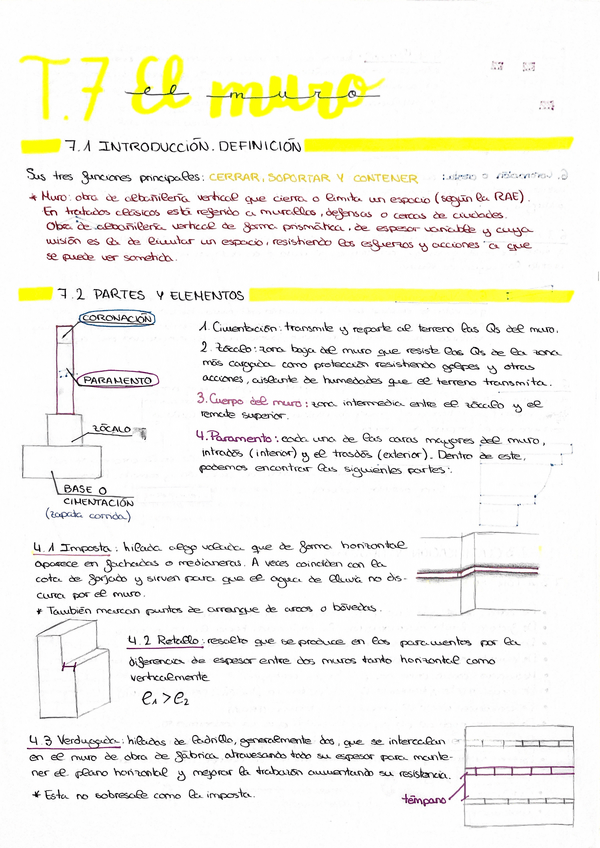 T.7 El muro
el muro
7.1 INTRODUCCIÓN. DEFINICIÓN
Sus tres funciones principales: CERRAR, SOPORTAR Y CONTENER
* Muro: obra de albañilería vertical que cierra o limita un espacio (según la RAE).
En tratados clásicos está referido a murallas, defensas o cercas de ciudades.
Obra de albañilería vertical de forma prismática, de espesor variable y cuya
misión es la de limitar un espacio, resistiendo los esfuerzos y acciones a que
se puede ver sometida.
7.2 PARTES Y ELEMENTOS
CORONACIÓN
PARAMENTO
ZÓCALO
BASE O
CIMENTACIÓN
(zapata corrida)
1. Cimentación: transmite y reparte al terreno las Qs del muro.
2. Zócalo: zona baja del muro que resiste las Qs de la zona
más cargada como protección resistiendo golpes y otras
acciones, aislante de humedades que el terreno transmita.
3. Cuerpo del muro: zona intermedia entre el zócalo y el
remate superior.
4. Paramento: cada una de las caras mayores del muro,
intradós (interior) y el trasdós (exterior). Dentro de este,
podemos encontrar las siguientes partes:
4.1 Imposta: hilada algo volada que de forma horizontal
aparece en fachadas o medianeras. A veces coinciden con la
cota de forjado y sirven para que el agua de lluvia no dis-
curra por el muro.
* También marcan puntos de arranque de arcos o bóvedas.
4.2 Retallo: resalto que se produce en los paramentos por la
diferencia de espesor entre dos muros tanto horizontal como
verticalmente
e₁ > e₂
4.3 Verdugada: hiladas de ladrillo, generalmente dos, que se intercalan
en el muro de obra de fábrica, atravesando todo su espesor para mante-
ner el plano horizontal y mejorar la trabazón aumentando su resistencia.
* Esta no sobresale como la imposta.
témpano